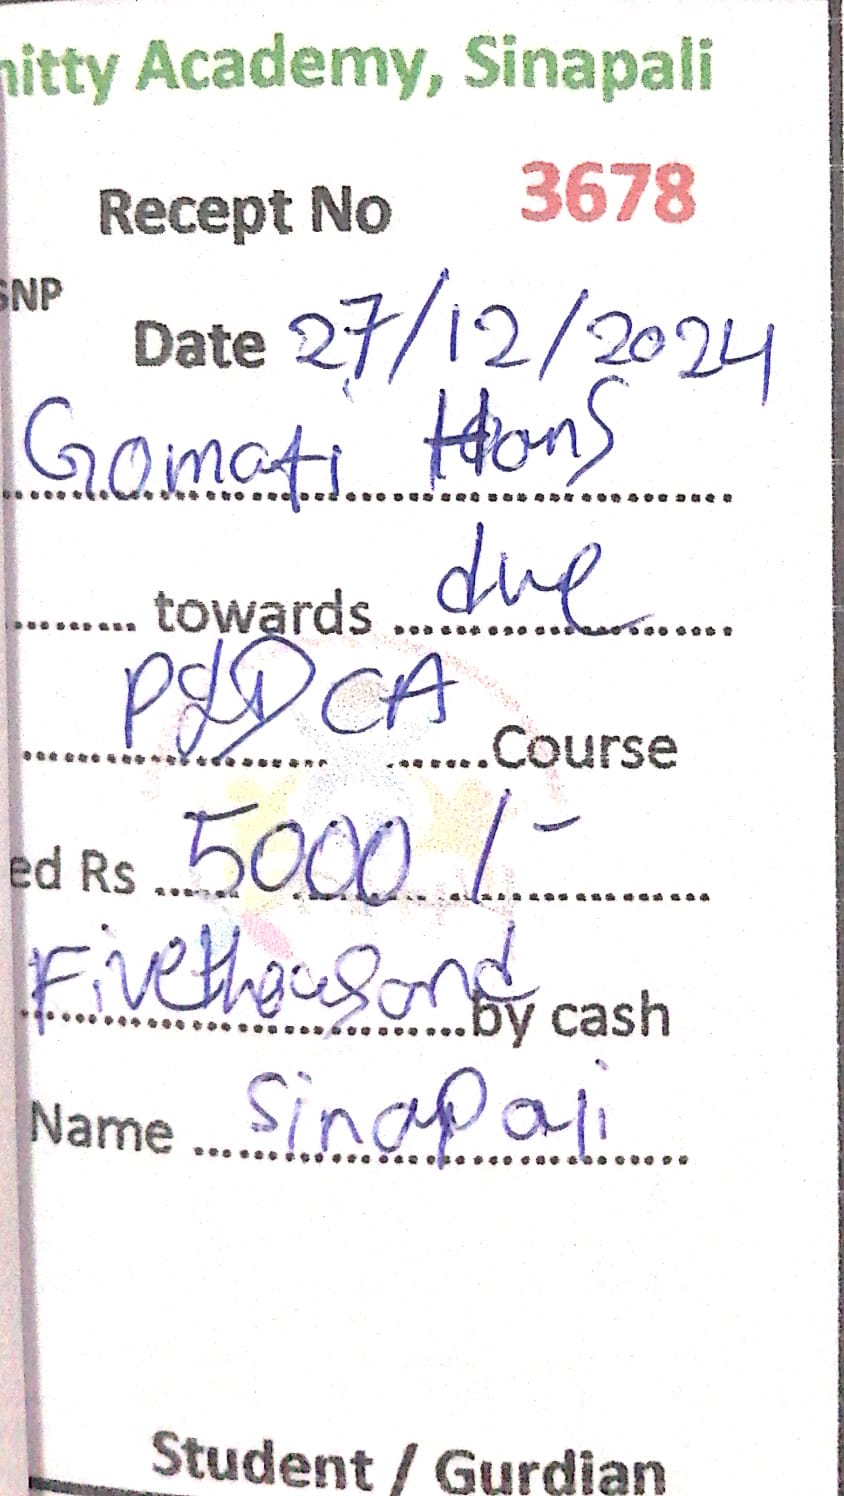 nitty Academy, Sinapali
Recept No 3678
SNP
Date 27/12/2024
Gomati Hans
towards due
PGDCA Course
ed Rs 5000/-
Five thousand by cash
Name Sinapali
Student / Gurdian